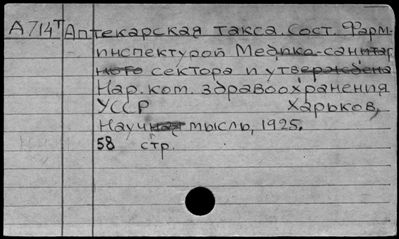 А714Т Аптекарская такса. Сост. Фарм-
инспектурой Медико-санитар
ного сектора и утверждена
Нар. ком. здравоохранения
УССР Харьков,
Научная мысль, 1925.
58 стр.